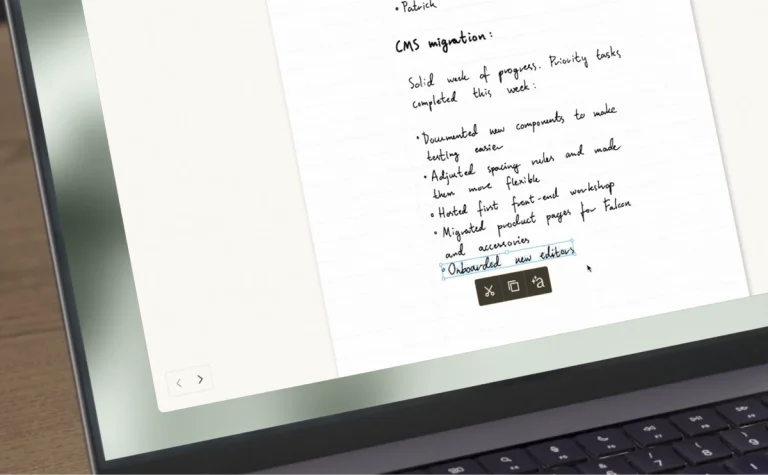 • Patrick
CMS migration:
Solid week of progress. Priority tasks
completed this week:
• Documented new components to make
testing easier
• Adjusted spacing rules and made
them more flexible
• Hosted first front-end workshop
• Migrated product pages for Falcon
and accessories
• Onboarded new editors
a